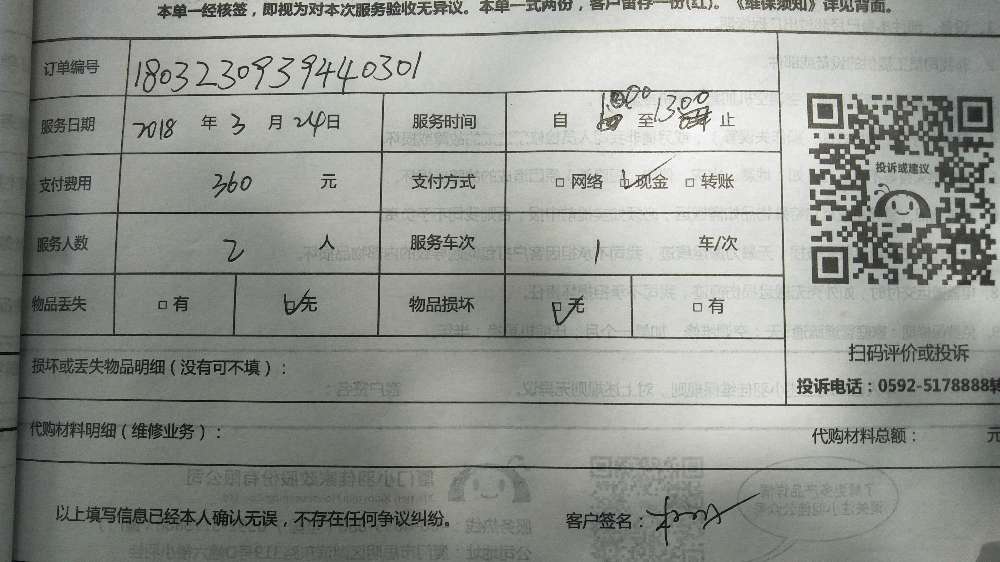 本单一经核签，即视为对本次服务验收无异议。本单一式两份，客户留存一份(红)。《维保须知》详见背面。
订单编号 1803230939440301
服务日期 2018 年 3 月 24 日 服务时间 自 至 13:00 止
支付费用 360 元 支付方式 □ 网络 ☑ 现金 □ 转账
服务人数 2 人 服务车次 1 车/次
物品丢失 □ 有 ☑ 无 物品损坏 ☑ 无 □ 有
投诉或建议
扫码评价或投诉
投诉电话：0592-5178888转
损坏或丢失物品明细（没有可不填）：
代购材料明细（维修业务）： 代购材料总额： 元
以上填写信息已经本人确认无误，不存在任何争议纠纷。 客户签名：